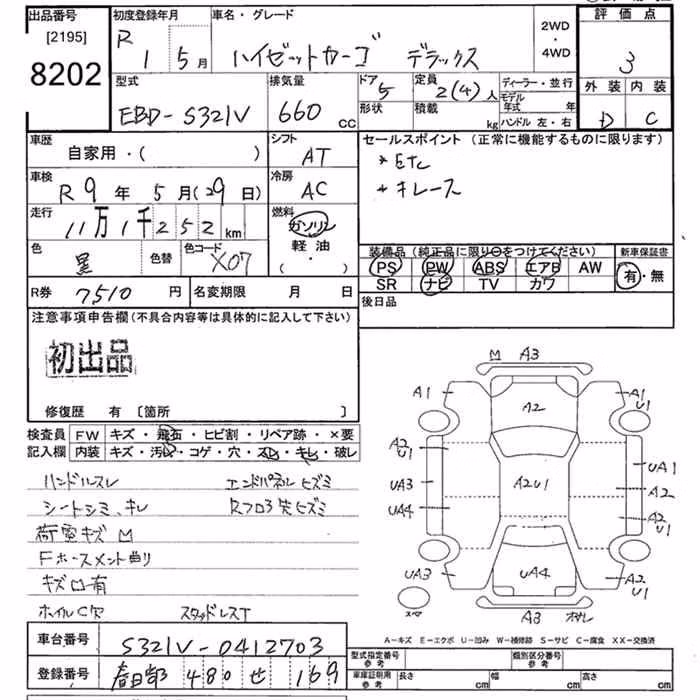 出品番号 [2195] 8202
初度登録年月 R 1 5月
車名・グレード ハイゼットカーゴ デラックス
2WD・4WD
評価点 3
外装 D 内装 C
型式 EBD-S321V
排気量 660 cc
ドア 5 形状
定員 2(4)人 積載 kg
ディーラー・並行
モデル年式 年
ハンドル 左・右
車歴 自家用・( )
シフト AT
セールスポイント (正常に機能するものに限ります)
*Etc
*キレース
車検 R9年 5月(29日)
冷房 AC
走行 11万1千252km
燃料 ガソリン 軽油・( )
色 黒 色替 色コード X07
装備品 (純正品に限り○をつけてください) 新車保証書
PS PW ABS エアB AW 有・無
SR ナビ TV カワ
R券 7510円 名変期限 月 日
後日品
注意事項申告欄(不具合内容等は具体的に記入して下さい)
初出品
修復歴 有 [箇所 ]
検査員 FW キズ・飛石・ヒビ割・リペア跡・×要
記入欄 内装 キズ・汚レ・コゲ・穴・スレ・キレ・破レ
ハンドルスレ エンドパネルヒズミ
シートシミ、キレ
荷電キズM
キズ凹有
ホイルC欠 スタッドレスT
M A3
A1 A1 U1
A2
A2 U1 A2U1 UA1
UA3 A2
UA4 A2 U1
UA3 UA4 A2 U1
A3
A-キズ E-エクボ U-凹み W-補修跡 S-サビ C-腐食 XX-交換済
車台番号 S321V-0412703
登録番号 春日部 480 せ 169
型式指定番号 参考 個別区分番号 参考
車庫証明用 参考 長さ cm 幅 cm 高さ cm